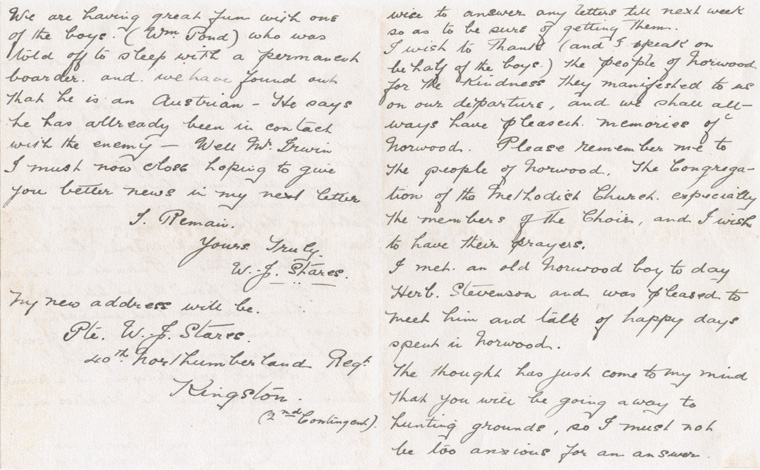 We are having great fun with one
of the boys. (Wm Pond) who was
told off to sleep with a permanent
boarder. and. we have found out
that he is an Austrian - He says
he has allready been in contact
with the enemy - Well Mr. Irwin
I must now close hoping to give
you better news in my next letter
I. Remain.
Yours Truly.
W. J. Stares.
My new address will be.
Pte. W. J. Stares.
40th Northumberland Regt.
Kingston.
(2nd Contingent).
wise to answer any letters till next week
so as to be sure of getting them.
I wish to Thank (and I speak on
behalf of the boys.) the people of Norwood
for the kindness they manifested to us
on our departure, and we shall all-
ways have pleasant. memories of
Norwood. Please remember me to
the people of Norwood. The Congrega-
tion of the Methodist Church. especially
the members of the Choir, and I wish
to have their prayers.
I met. an old Norwood boy to day
Herb. Stevenson and was pleased to
meet him and talk of happy days
spent in Norwood.
The thought has just come to my mind
that you will be going away to
hunting grounds, so I must not
be too anxious for an answer.